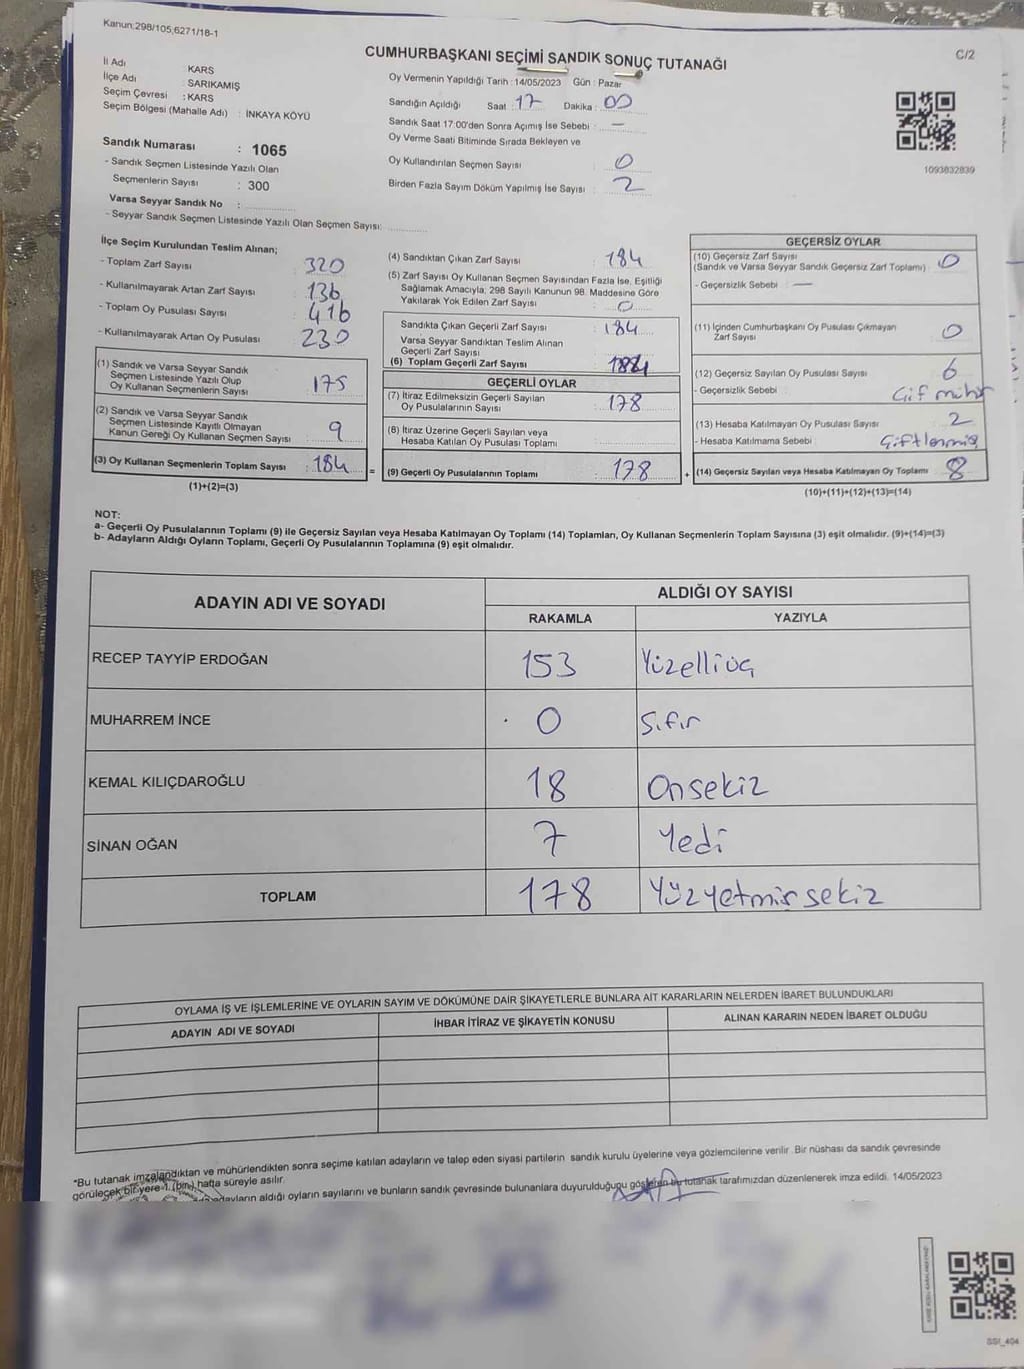 Kanun:298/105,6271/18-1
CUMHURBAŞKANI SEÇİMİ SANDIK SONUÇ TUTANAĞI
C/2
İl Adı KARS
İlçe Adı SARIKAMIŞ
Seçim Çevresi : KARS
Seçim Bölgesi (Mahalle Adı) : İNKAYA KÖYÜ
Sandık Numarası : 1065
- Sandık Seçmen Listesinde Yazılı Olan
Seçmenlerin Sayısı : 300
Varsa Seyyar Sandık No :
- Seyyar Sandık Seçmen Listesinde Yazılı Olan Seçmen Sayısı:
Oy Vermenin Yapıldığı Tarih :14/05/2023 Gün : Pazar
Sandığın Açıldığı Saat : 17 Dakika : 00
Sandık Saat 17:00'den Sonra Açımış İse Sebebi : —
Oy Verme Saati Bitiminde Sırada Bekleyen ve
Oy Kullandırılan Seçmen Sayısı : 0
Birden Fazla Sayım Döküm Yapılmış İse Sayısı : 2
1093832839
İlçe Seçim Kurulundan Teslim Alınan;
- Toplam Zarf Sayısı : 320
- Kullanılmayarak Artan Zarf Sayısı : 136
- Toplam Oy Pusulası Sayısı : 416
- Kullanılmayarak Artan Oy Pusulası : 230
(1) Sandık ve Varsa Seyyar Sandık
Seçmen Listesinde Yazılı Olup
Oy Kullanan Seçmenlerin Sayısı : 175
(2) Sandık ve Varsa Seyyar Sandık
Seçmen Listesinde Kayıtlı Olmayan
Kanun Gereği Oy Kullanan Seçmen Sayısı : 9
(3) Oy Kullanan Seçmenlerin Toplam Sayısı : 184 =
(1)+(2)=(3)
(4) Sandıktan Çıkan Zarf Sayısı : 184
(5) Zarf Sayısı Oy Kullanan Seçmen Sayısından Fazla İse, Eşitliği
Sağlamak Amacıyla; 298 Sayılı Kanunun 98. Maddesine Göre
Yakılarak Yok Edilen Zarf Sayısı : 0
Sandıkta Çıkan Geçerli Zarf Sayısı : 184
Varsa Seyyar Sandıktan Teslim Alınan
Geçerli Zarf Sayısı
(6) Toplam Geçerli Zarf Sayısı : 184
GEÇERLİ OYLAR
(7) İtiraz Edilmeksizin Geçerli Sayılan
Oy Pusulalarının Sayısı : 178
(8) İtiraz Üzerine Geçerli Sayılan veya
Hesaba Katılan Oy Pusulası Toplamı
(9) Geçerli Oy Pusulalarının Toplamı : 178 +
GEÇERSİZ OYLAR
(10) Geçersiz Zarf Sayısı
(Sandık ve Varsa Seyyar Sandık Geçersiz Zarf Toplamı) : 0
- Geçersizlik Sebebi : —
(11) İçinden Cumhurbaşkanı Oy Pusulası Çıkmayan
Zarf Sayısı : 0
(12) Geçersiz Sayılan Oy Pusulası Sayısı : 6
- Geçersizlik Sebebi : Çif mühür
(13) Hesaba Katılmayan Oy Pusulası Sayısı : 2
- Hesaba Katılmama Sebebi : Çiftlenmiş
(14) Geçersiz Sayılan veya Hesaba Katılmayan Oy Toplamı : 8
(10)+(11)+(12)+(13)=(14)
NOT:
a- Geçerli Oy Pusulalarının Toplamı (9) ile Geçersiz Sayılan veya Hesaba Katılmayan Oy Toplamı (14) Toplamları, Oy Kullanan Seçmenlerin Toplam Sayısına (3) eşit olmalıdır. (9)+(14)=(3)
b- Adayların Aldığı Oyların Toplamı, Geçerli Oy Pusulalarının Toplamına (9) eşit olmalıdır.
ADAYIN ADI VE SOYADI
ALDIĞI OY SAYISI
RAKAMLA YAZIYLA
RECEP TAYYİP ERDOĞAN 153 Yüzelliüç
MUHARREM İNCE 0 Sıfır
KEMAL KILIÇDAROĞLU 18 Onsekiz
SİNAN OĞAN 7 Yedi
TOPLAM 178 Yüzyetmişsekiz
OYLAMA İŞ VE İŞLEMLERİNE VE OYLARIN SAYIM VE DÖKÜMÜNE DAİR ŞİKAYETLERLE BUNLARA AİT KARARLARIN NELERDEN İBARET BULUNDUKLARI
ADAYIN ADI VE SOYADI İHBAR İTİRAZ VE ŞİKAYETİN KONUSU ALINAN KARARIN NEDEN İBARET OLDUĞU
*Bu tutanak imzalandıktan ve mühürlendikten sonra seçime katılan adayların ve talep eden siyasi partilerin sandık kurulu üyelerine veya gözlemcilerine verilir. Bir nüshası da sandık çevresinde
görülecek bir yere 1 (bir) hafta süreyle asılır.
adayların aldığı oyların sayılarını ve bunların sandık çevresinde bulunanlara duyurulduğunu gösteren bu tutanak tarafımızdan düzenlenerek imza edildi. 14/05/2023
SSI_404